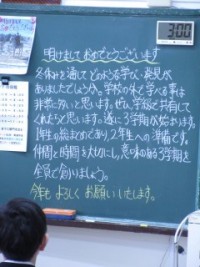 明けましておめでとうございます
冬休みを通してどのような学び・発見が
ありましたでしょうか。学校の外で学べる事は
非常に多いと思います。ぜひ、学校で共有して
くれたらと思います。遂に3学期が始まります。
1年の総まとめであり、2年生への準備です。
仲間と時間を大切にし、意味のある3学期を
全員で創りましょう。
今年もよろしくお願いいたします。
3:00